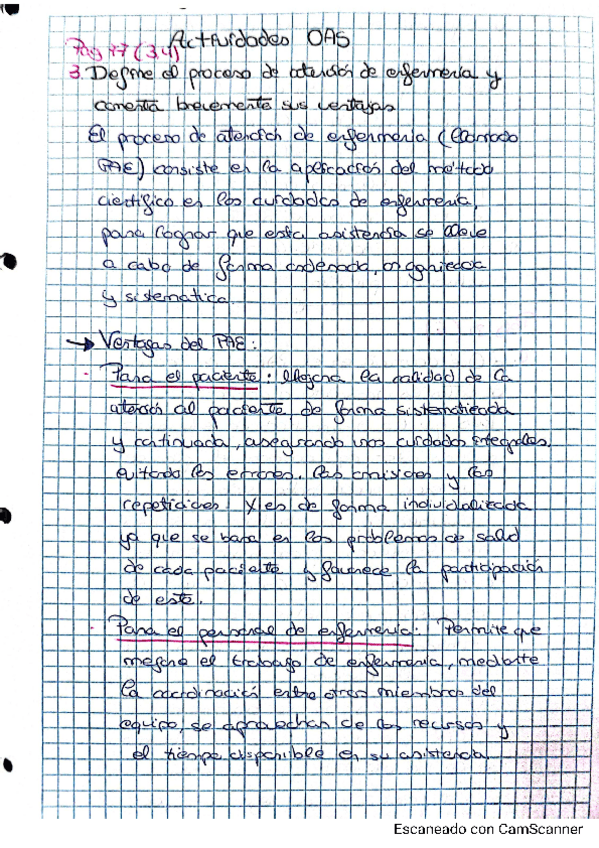 Actividades OAS
Pag 77 (3,4)
3. Define el proceso de atención de enfermería y
comenta brevemente sus ventajas
El proceso de atención de enfermería (llamado
PAE) consiste en la aplicación del método
científico en los cuidados de enfermería,
para lograr que esta asistencia se lleve
a cabo de forma ordenada, organizada
y sistematica.
→ Ventajas del PAE:
- Para el paciente: Mejora la calidad de la
atención al paciente de forma sistematizada
y continuada, asegurando unos cuidados integrales,
evitando los errores, las omisiones y las
repeticiones. Y es de forma individualizada
ya que se basa en los problemas de salud
de cada paciente y favorece la participación
de este.
- Para el personal de enfermería: Permite que
mejore el trabajo de enfermería, mediante
la coordinación entre otros miembros del
equipo, se aprovechan de los recursos y
el tiempo disponible en su asistencia.
Escaneado con CamScanner